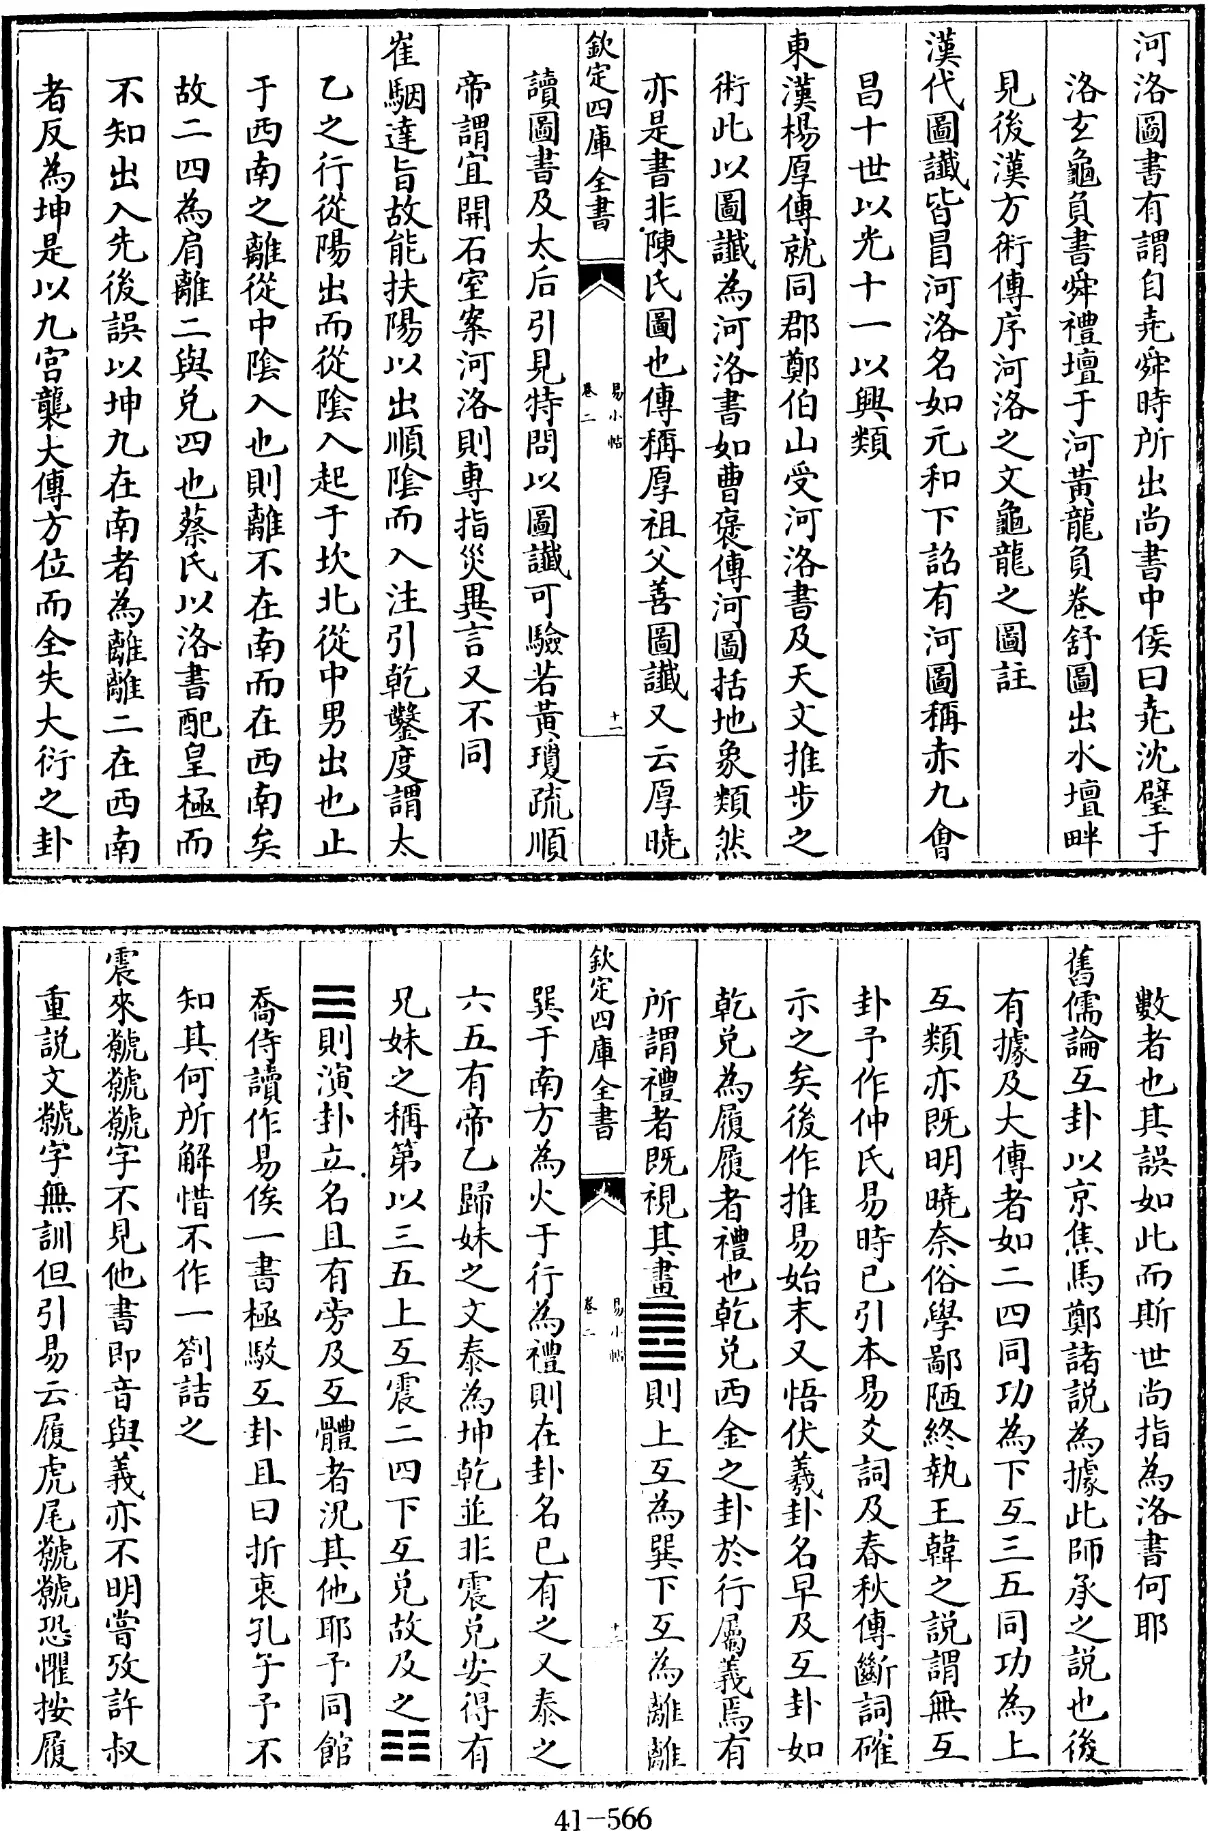 河洛圖書有謂自堯舜時所出尚書中侯曰堯沈璧于
洛玄龜負書舜禮壇于河黃龍負卷舒圖出水壇畔
見後漢方術傳序河洛之文龜龍之圖註
漢代圖讖皆冒河洛名如元和下詔有河圖稱赤九會
昌十世以光十一以興類
東漢楊厚傳就同郡鄭伯山受河洛書及天文推步之
術此以圖讖為河洛書如曹褒傳河圖括地象類然
亦是書非陳氏圖也傳稱厚祖父善圖讖又云厚曉
欽定四庫全書
易小帖
卷二
十一
讀圖書及太后引見特問以圖讖可驗若黃瓊疏順
帝謂宜開石室案河洛則專指災異言又不同
崔駰達旨故能扶陽以出順陰而入注引乾鑿度謂太
乙之行從陽出而從陰入起于坎北從中男出也止
于西南之離從中陰入也則離不在南而在西南矣
故二四為肩離二與兌四也蔡氏以洛書配皇極而
不知出入先後誤以坤九在南者為離離二在西南
者反為坤是以九宮襲大傳方位而全失大衍之卦
數者也其誤如此而斯世尚指為洛書何耶
舊儒論互卦以京焦馬鄭諸說為據此師承之說也後
有據及大傳者如二四同功為下互三五同功為上
互類亦既明曉奈俗學鄙陋終執王韓之說謂無互
卦予作仲氏易時已引本易爻詞及春秋傳斷詞確
示之矣後作推易始末又悟伏羲卦名早及互卦如
乾兌為履履者禮也乾兌西金之卦於行屬義焉有
所謂禮者既視其畫䷉則上互為巽下互為離離
欽定四庫全書
易小帖
卷二
巽于南方為火于行為禮則在卦名已有之又泰之
六五有帝乙歸妹之文泰為坤乾並非震兌安得有
兄妹之稱第以三五上互震二四下互兌故及之䷊
則演卦立名且有旁及互體者況其他耶予同館
喬侍讀作易俟一書極駁互卦且曰折衷孔子予不
知其何所解惜不作一劄詰之
震來虩虩虩字不見他書即音與義亦不明嘗攷許叔
重說文虩字無訓但引易云履虎尾虩虩恐懼按履
41-566